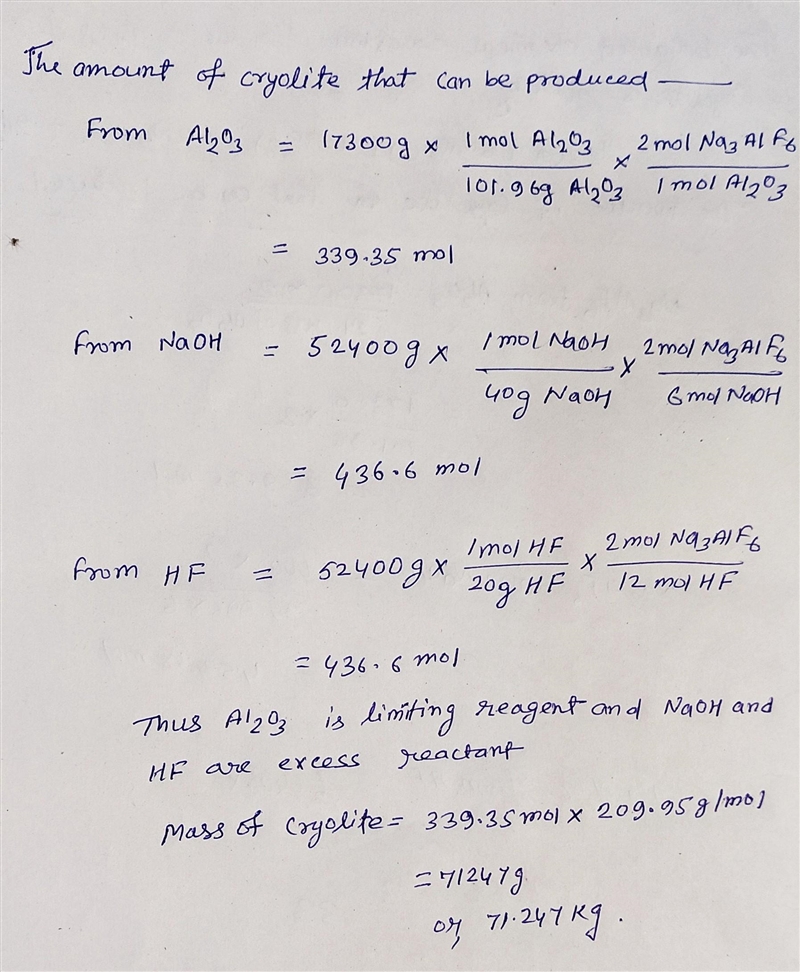 The amount of cryolite that can be produced —
From Al₂O₃ = 17300g × 1 mol Al₂O₃ / 101.96g Al₂O₃ × 2 mol Na₃AlF₆ / 1 mol Al₂O₃
= 339.35 mol
From NaOH = 52400g × 1 mol NaOH / 40g NaOH × 2 mol Na₃AlF₆ / 6 mol NaOH
= 436.6 mol
From HF = 52400g × 1 mol HF / 20g HF × 2 mol Na₃AlF₆ / 12 mol HF
= 436.6 mol
Thus Al₂O₃ is limiting reagent and NaOH and
HF are excess reactant
Mass of cryolite = 339.35 mol × 209.95 g/mol
= 71247g
or, 71.247 Kg.